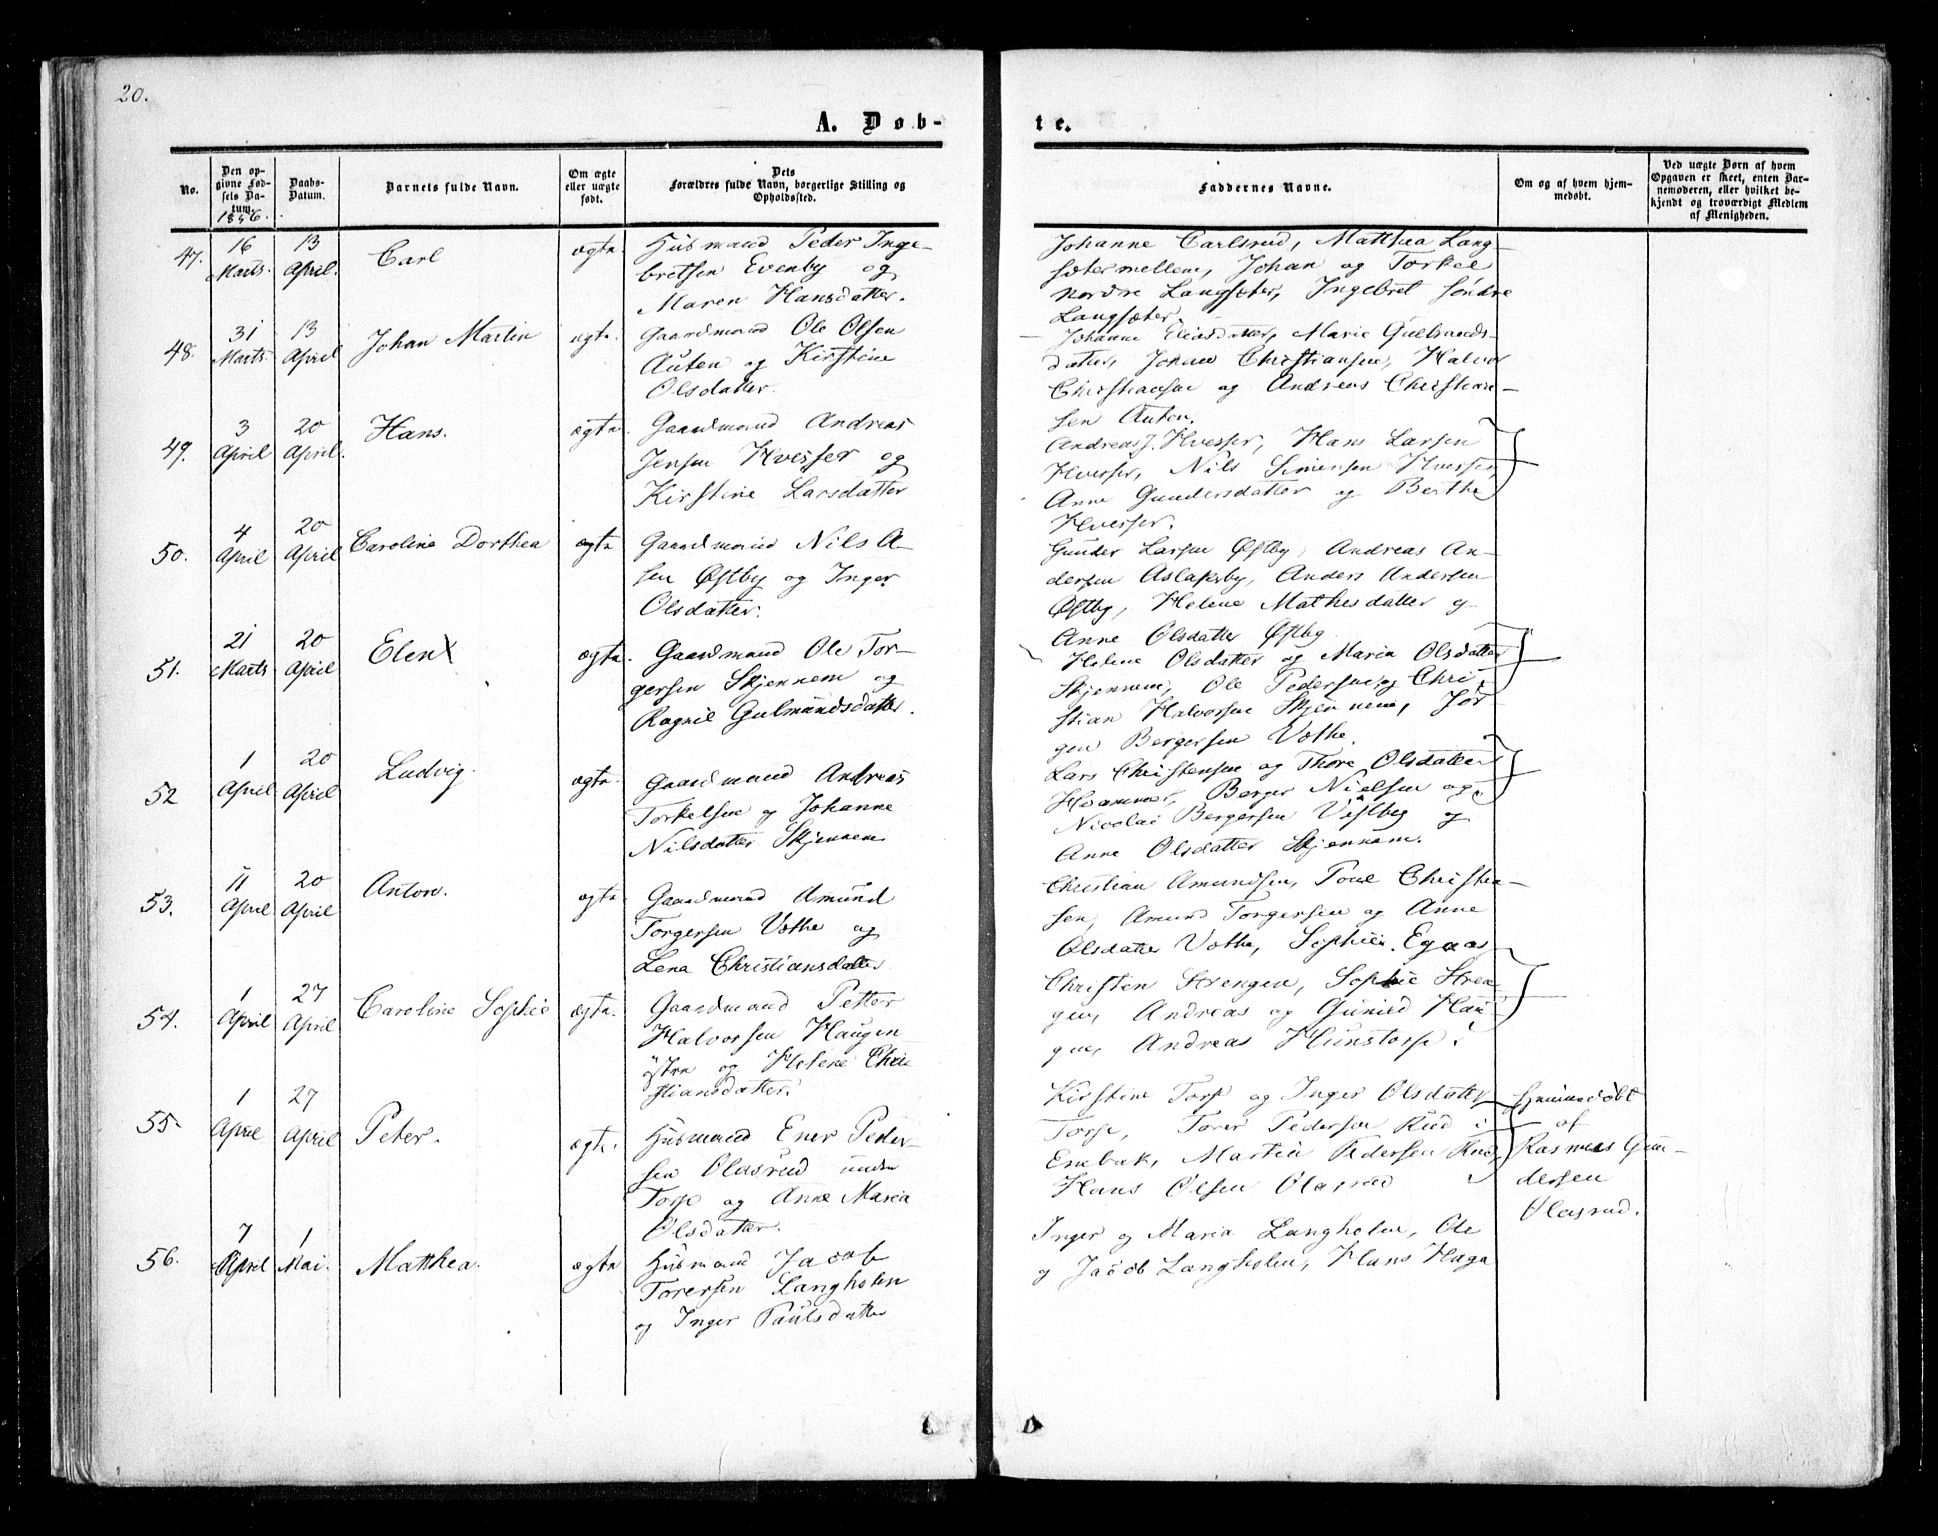 20.
A. Døb-
te.
No.
Den op-
givne Fød-
sels Da-
tum.
1856.
Daabs-
Datum.
Barnets fulde Navn.
Om ægte
eller uægte
født.
Dets
Forældres fulde Navn, borgerlige Stilling og
Opholdssted.
Faddernes Navne.
Om og af hvem hjem-
medøbt.
Ved uægte Børn af hvem
Opgaven er skeet, enten Bar-
nemoderen, eller hvilket be-
kjendt og troværdigt Medlem
af Menigheden.
47.
16
Marts.
13
April.
Carl
ægte
Husmand Peder Inge-
bretsen Evenby og
Maren Hansdatter.
Johanne Carlsrud, Matthea Lang-
sæter mellem, Johan og Torkel
nordre Langsæter, Ingebret søndre
Langsæter.
48.
31
Marts
13
April
Johan Martin
ægte
Gaardmand Ole Olsen
Auten og Kirstine
Olsdatter.
Johanne Eliasdatter, Marie Gulbrands-
datter, Johan Christiansen, Halvor
Christiansen og Andreas Christian-
sen Auten.
49.
3
April
20
April.
Hans.
ægte.
Gaardmand Andreas
Jensen Hvesser og
Kirstine Larsdatter
Andreas J. Hvesser, Hans Larsen
Hvesser, Nils Simensen Hvesser,
Anne Gundersdatter og Berthe
Hvesser.
50.
4
April
20
April
Caroline Dorthea
ægte
Gaardmand Nils A-
sen Østby og Inger
Olsdatter.
Gunder Larsen Østby, Andreas An-
dersen Aslaksby, Anders Andersen
Østby, Helene Mathisdatter og
Anne Olsdatter Østby
51.
21
Marts
20
April
Elen
ægte.
Gaardmand Ole Tor-
gersen Skjennem og
Ragnil Gulmundsdatter.
Helene Olsdatter og Maria Olsdatter
Skjennem, Ole Pedersen og Chri-
stian Halvorsen Skjennem, Jør
gen Bergersen Vøthe.
52
1
April
20
April
Ludvig.
ægte.
Gaardmand Andreas
Torkelsen og Johanne
Nilsdatter Skjennem
Lars Christensen og Thore Olsdatter
Hvammer, Berger Nielsen og
Nicolai Bergersen Vestby og
Anne Olsdatter Skjennem.
53.
11
April
20
April
Anton.
ægte
Gaardmand Amund
Torgersen Vøthe og
Lena Christiansdatter
Christian Amundsen, Poul Christian-
sen, Amund Torgersen og Anne
Olsdatter Vøthe, Sophie Egnas
54.
1
April
27
April
Caroline Sophie
ægte.
Gaardmand Petter
Halvorsen Haugen
østre og Helene Chri
stiansdatter.
Christen Strengen, Sophie Stren
gen, Andreas og Gunild Hau
gen, Andreas Hunstorp.
55
1
April
27
April
Peter.
ægte.
Husmand Ener Peder-
sen Olasrud under
Torp og Anne Maria
Olsdatter.
Kirstine Torp og Inger Olsdatter
Torp, Torer Pedersen Rud i
Enebak, Martin Pedersen Rud,
Hans Olsen Olasrud
Hjemmedøbt
af
Rasmus Gun-
dersen
Olasrud.
56.
7
April
1
Mai.
Matthea.
ægte
Husmand Jacob
Torersen Langholen
og Inger Paulsdatter
Inger og Maria Langholen, Ole
og Jacob Langholen, Hans Haga